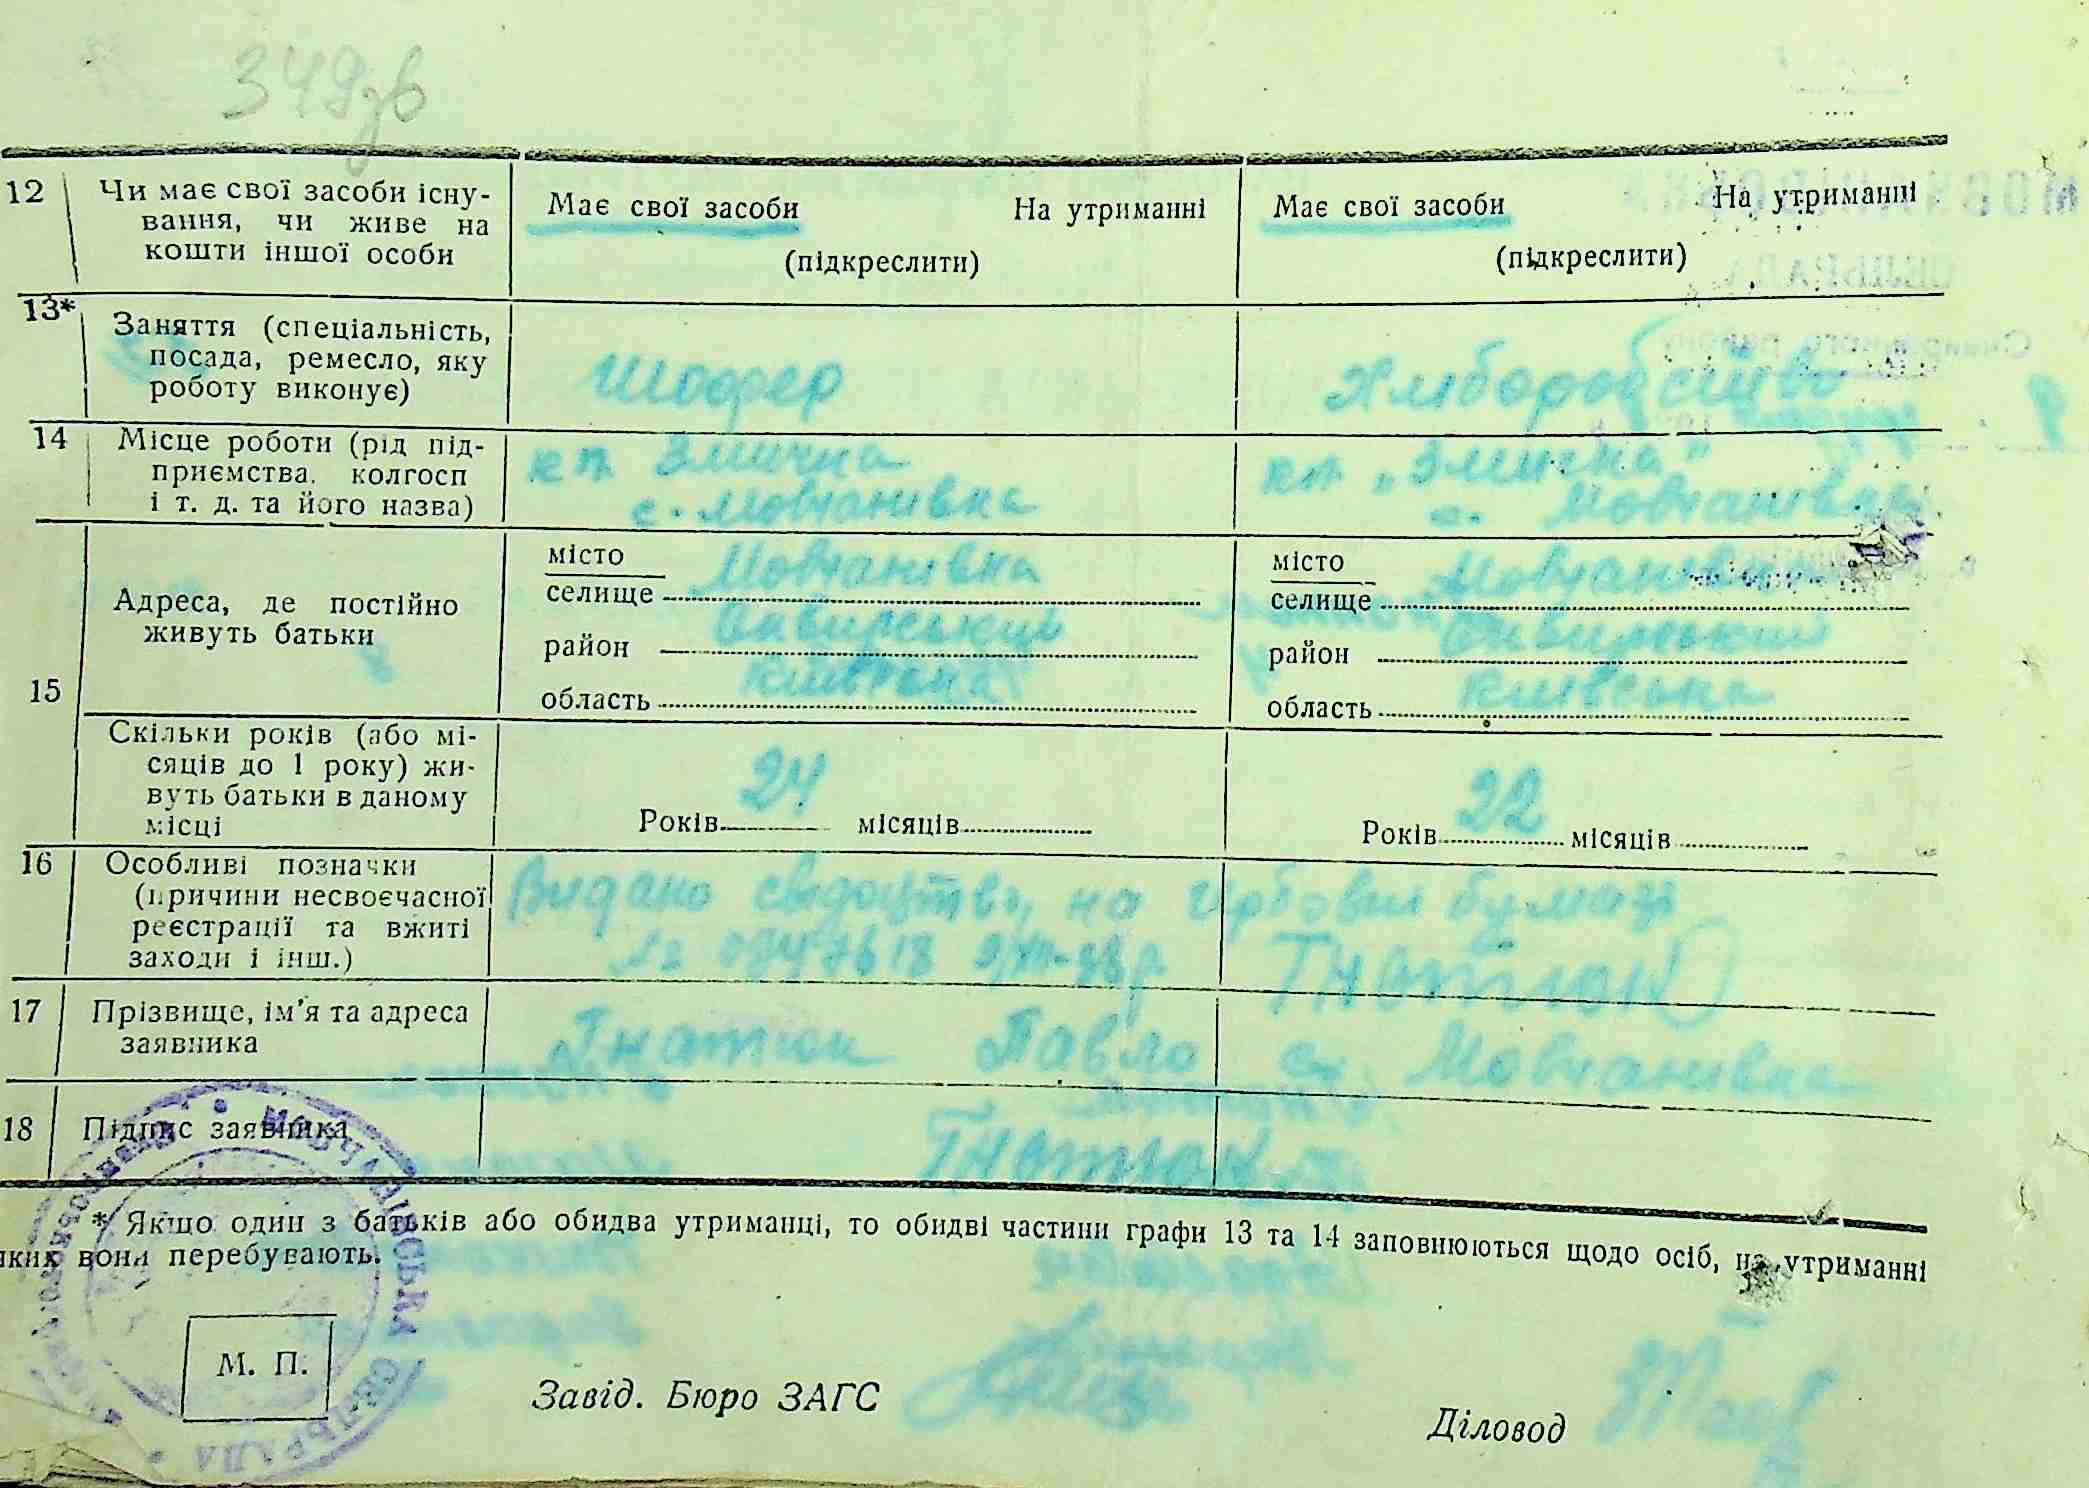 349зв
12 Чи має свої засоби існу-
вання, чи живе на
кошти іншої особи
Має свої засоби На утриманні
(підкреслити)
Має свої засоби На утриманні
(підкреслити)
13* Заняття (спеціальність,
посада, ремесло, яку
роботу виконує)
Шофер
Хліборобство
14 Місце роботи (рід під-
приємства, колгосп
і т. д. та його назва)
кп. Змичка
с. Мовчанівка
кп. „Змичка"
с. Мовчанівка
15
Адреса, де постійно
живуть батьки
місто
селище Мовчанівка
район
область Київська
місто
селище Мовчанівка
район
область Київська
Скільки років (або мі-
сяців до 1 року) жи-
вуть батьки в даному
місці
Років 24 місяців
Років 22 місяців
16 Особливі позначки
(причини несвоєчасної
реєстрації та вжиті
заходи і інш.)
Видано свідоцтво на гербовій бумазі
№
Гнатюк
17 Прізвище, ім'я та адреса
заявника
Гнатюк Павло с. Мовчанівка
18 Підпис заявника
Гнатюк
* Якщо один з батьків або обидва утриманці, то обидві частини графи 13 та 14 заповнюються щодо осіб, на утриманні
яких вони перебувають.
МОВЧАНІВСЬКА СІЛЬРАДА
М. П.
Завід. Бюро ЗАГС
Діловод